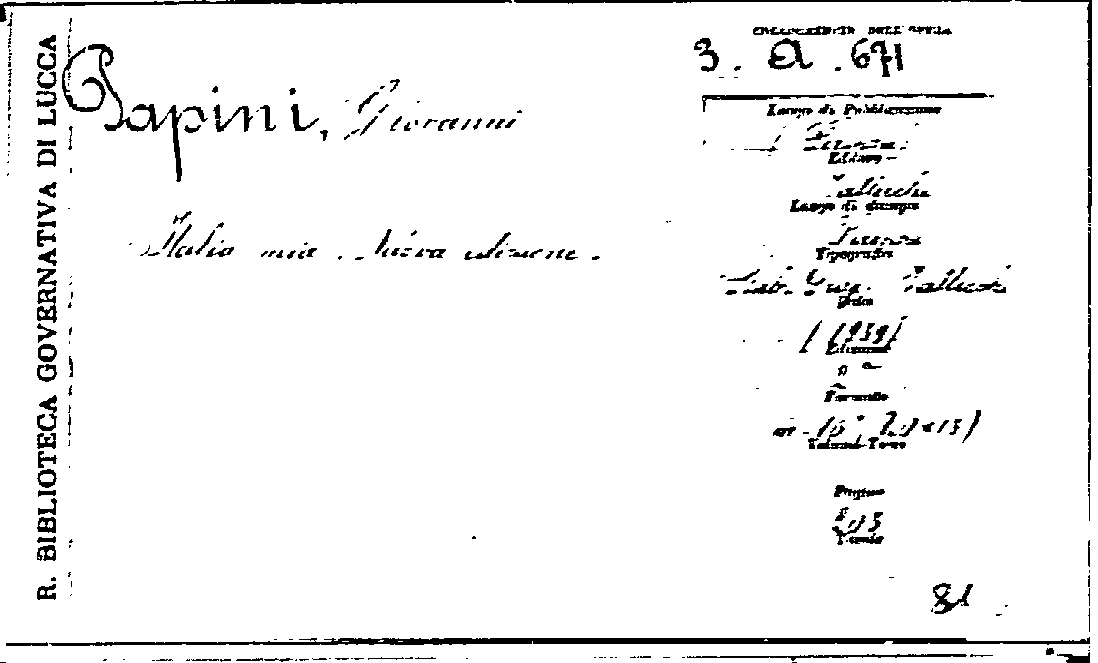 R. BIBLIOTECA GOVERNATIVA DI LUCCA
COLLOCAZIONE DELL'OPERA
3. A. 671
Papini, Giovanni
Italia mia. Nuova edizione.
Luogo di Pubblicazione
Firenze
Editore
Vallecchi
Luogo di stampa
Firenze
Tipografia
Stab. Graf. Vallecchi
Data
(1939)
Edizione
Formato
16° (20x13)
Volumi-Tomo
Pagine
Tavole
81